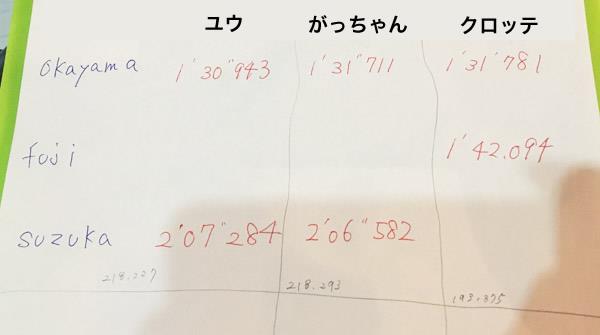 ユウ がっちゃん クロッテ
Okayama 1'30"943 1'31"711 1'31'781
fuji 1'42.094
suzuka 2'07"284 2'06"582
218.227 218.293 193.875